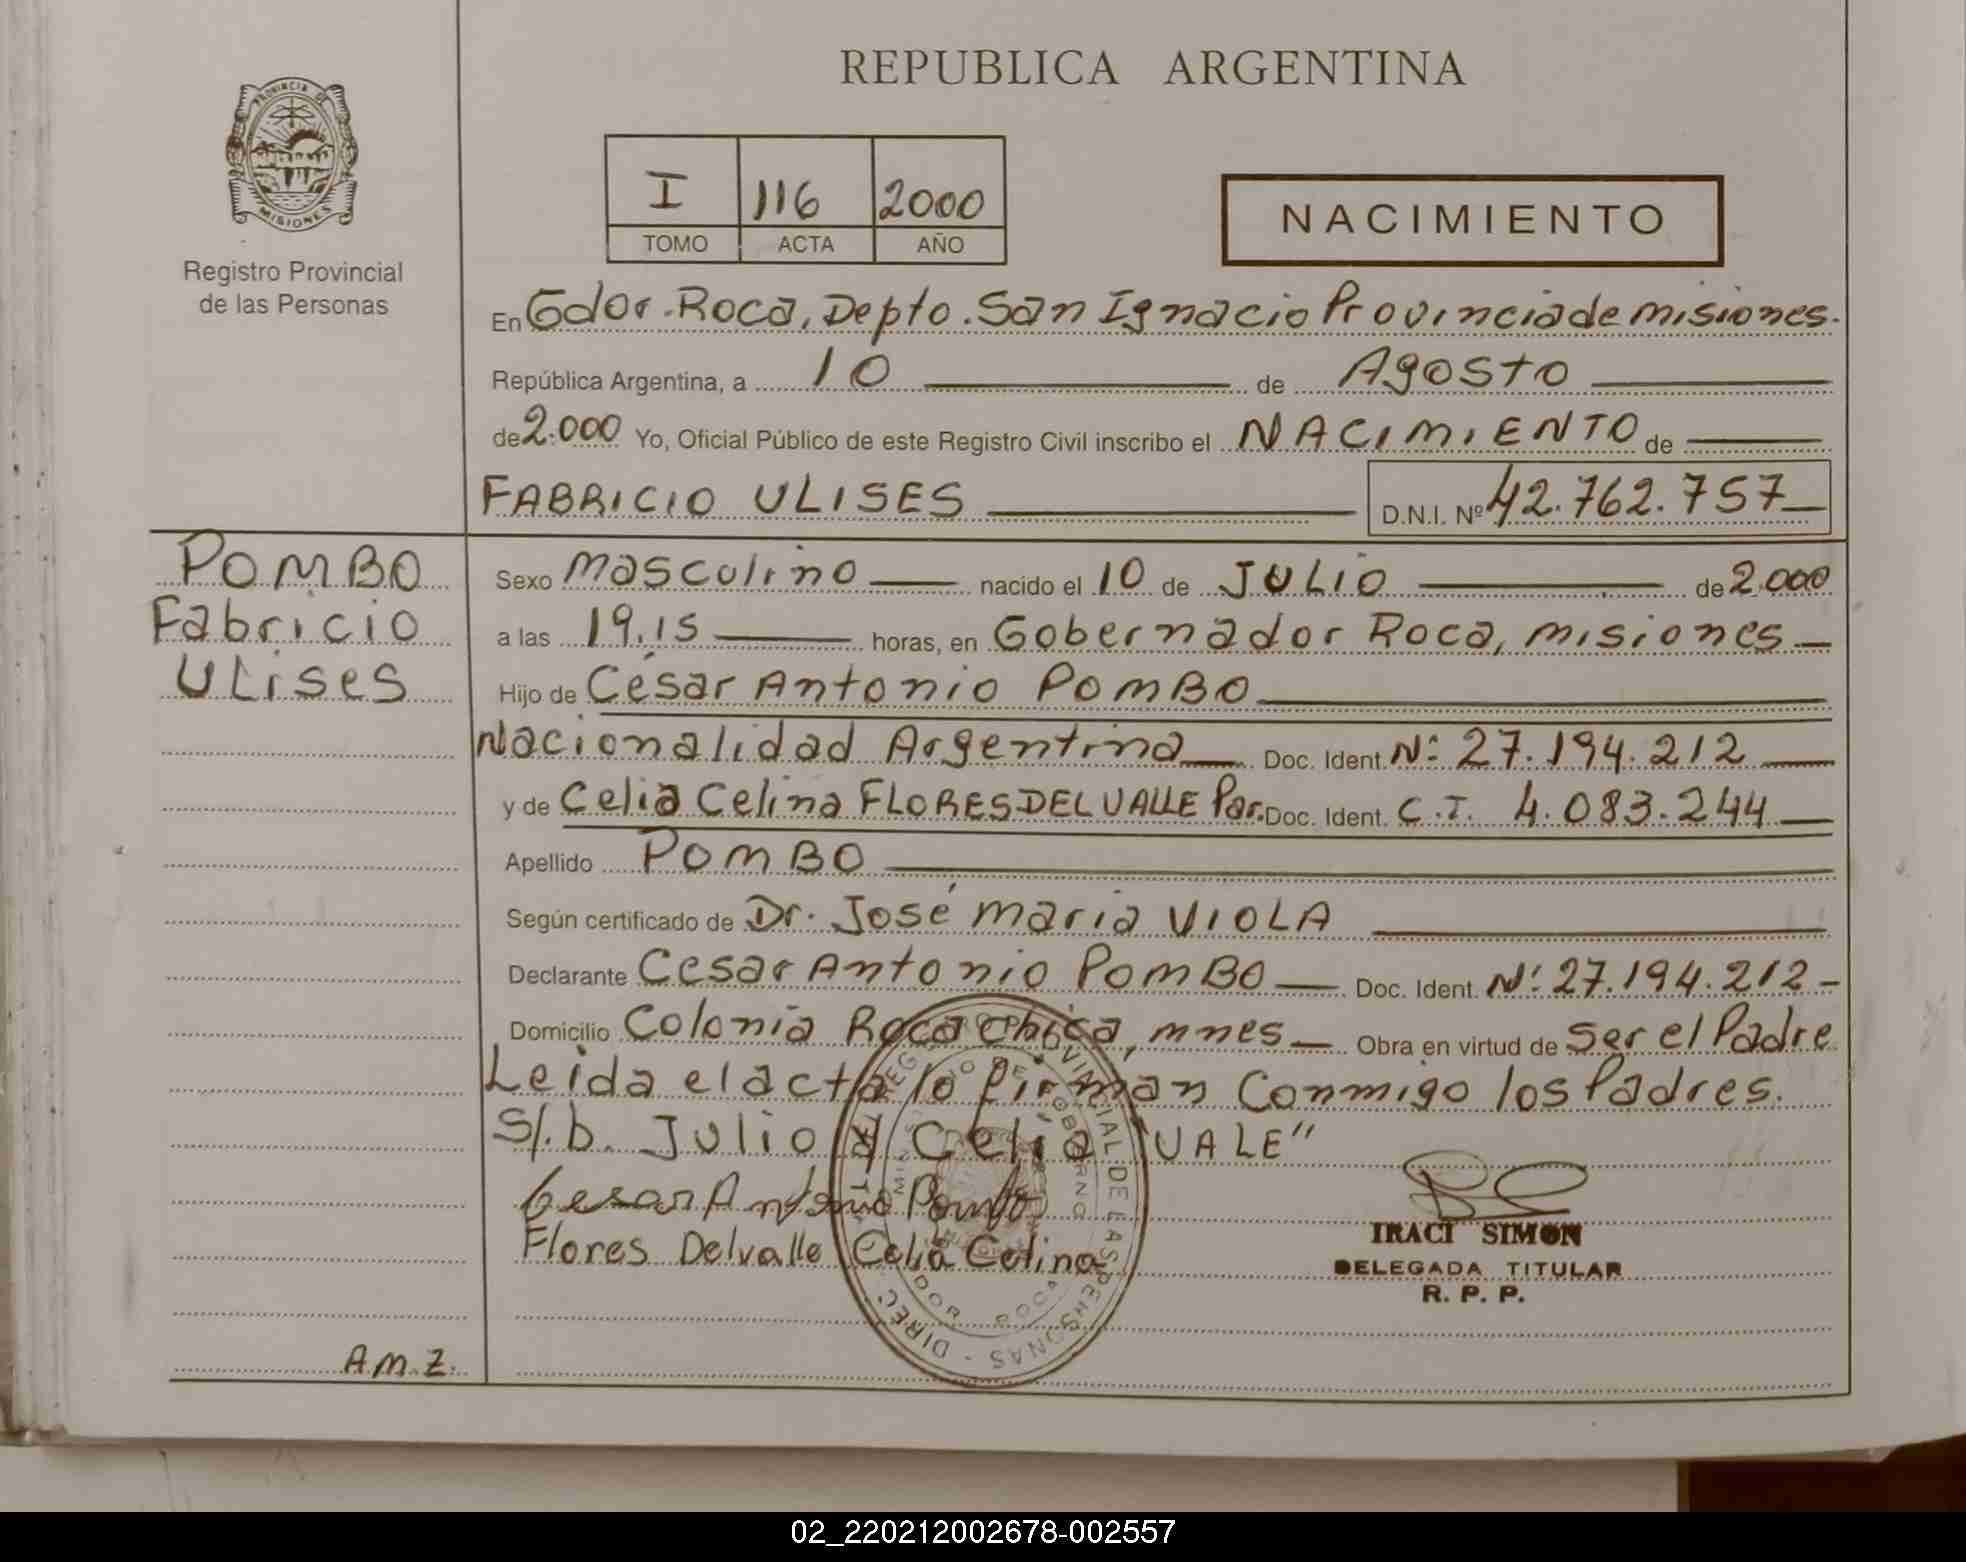 REPUBLICA ARGENTINA
PROVINCIA DE
MISIONES
Registro Provincial
de las Personas
I 116 2000
TOMO ACTA AÑO
NACIMIENTO
En Gdor. Roca, Depto. San Ignacio Provincia de misiones.
República Argentina, a 10 de Agosto
de 2.000 Yo, Oficial Público de este Registro Civil inscribo el NACIMIENTO de
FABRICIO ULISES D.N.I. Nº 42.762.757
POMBO
Fabricio
ULises
Sexo masculino nacido el 10 de JULIO de 2.000
a las 19.15 horas, en Gobernador Roca, misiones
Hijo de César Antonio POMBO
Nacionalidad Argentina Doc. Ident. Nº 27.194.212
y de Celia Celina FLORES DEL VALLE Par. Doc. Ident. C.I. 4.083.244
Apellido POMBO
Según certificado de Dr. José maria VIOLA
Declarante Cesar Antonio POMBO Doc. Ident. Nº 27.194.212
Domicilio Colonia Roca Chica, mnes Obra en virtud de Ser el Padre
Leida el acta lo firman Conmigo los Padres.
S/.b. Julio y Celia "VALE"
Cesar Antonio Pombo
Flores Delvalle Celia Celina
IRACI SIMON
DELEGADA TITULAR
R. P. P.
A.M.Z.
02_220212002678-002557